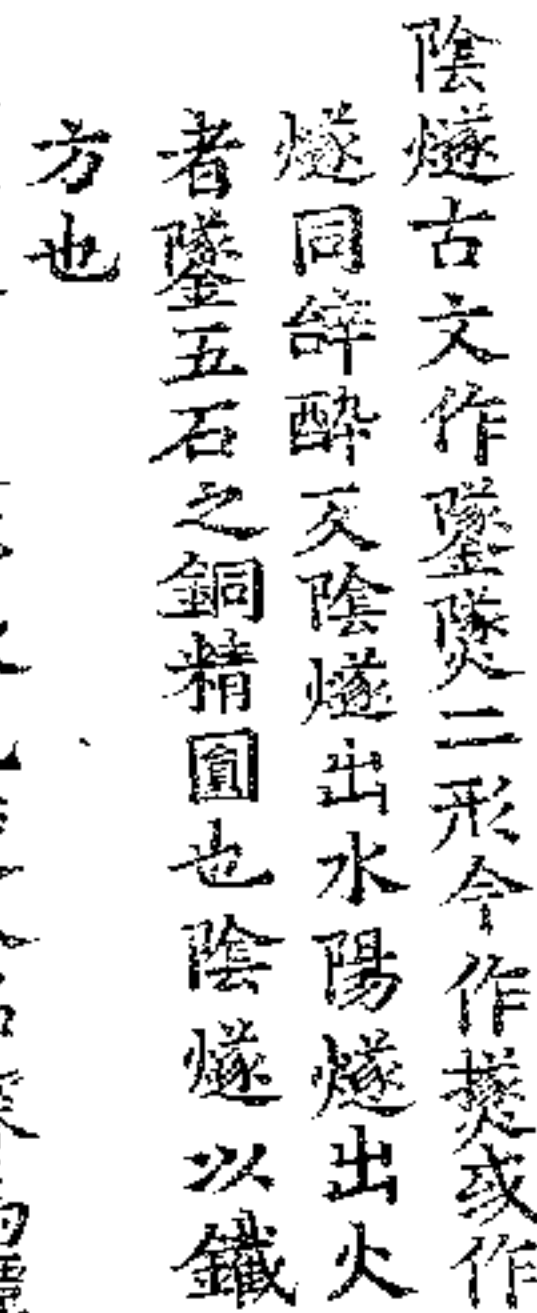 陰燧古文作鐆㷂二形今作㸂或作
燧同辝醉反陰燧出水陽燧出火
者鐆五石之銅精圓也陰燧以鐵
方也